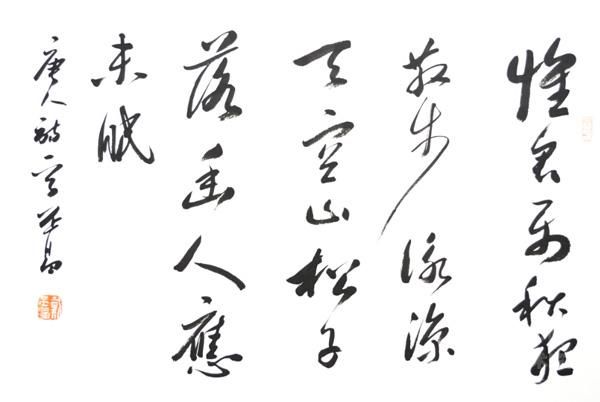 懷君屬秋夜
散步詠涼
天空山松子
落幽人應
未眠
唐人詩